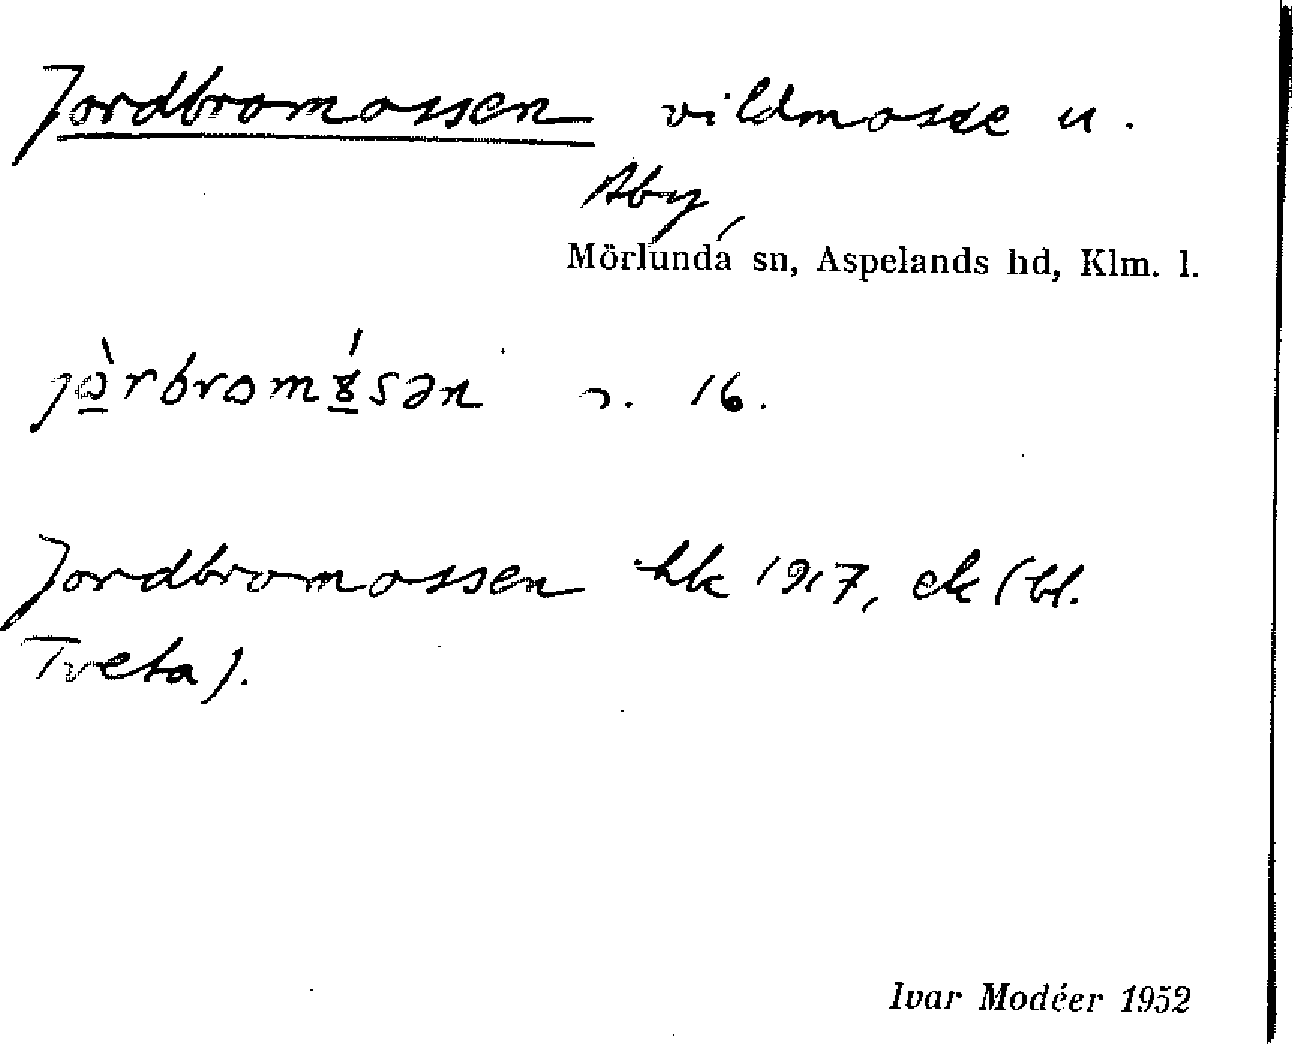 Jordbromossen vildmosse u.
Åby,
Mörlunda sn, Aspelands hd, Klm. l.
jo̱rbromɤ̱sən 16.
Jordbromossen hk 1917, ek (bl.
Tveta).
Ivar Modéer 1952